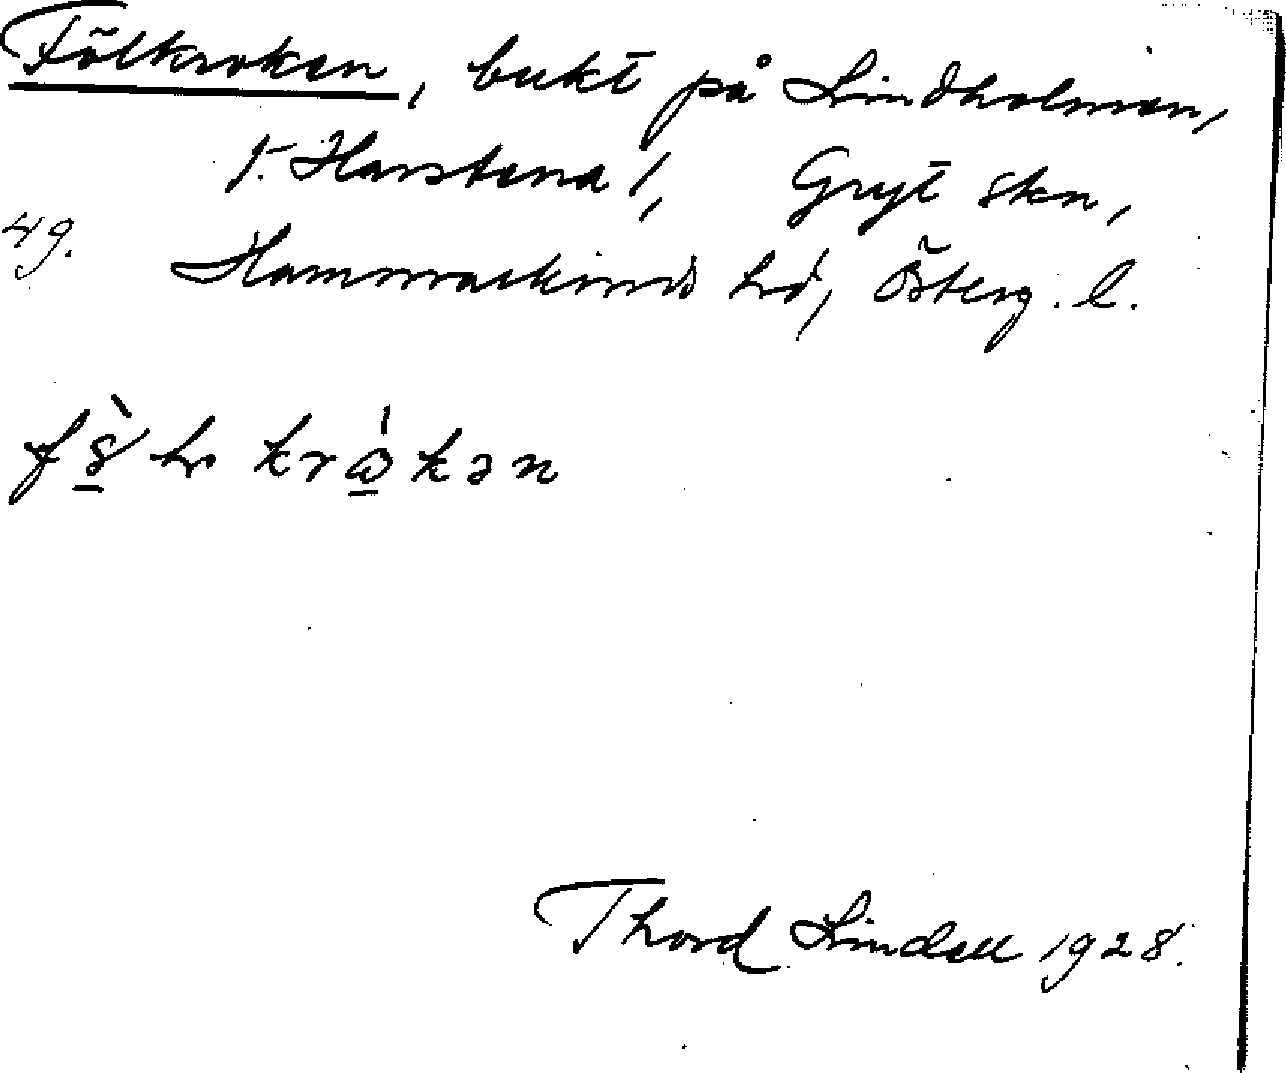 Fölkroken, bukt på Lindholmen,
f. Harstena /, Gryt skn,
49. Hammarkinds hd, Österg. l.
Thord Lindell 1928.